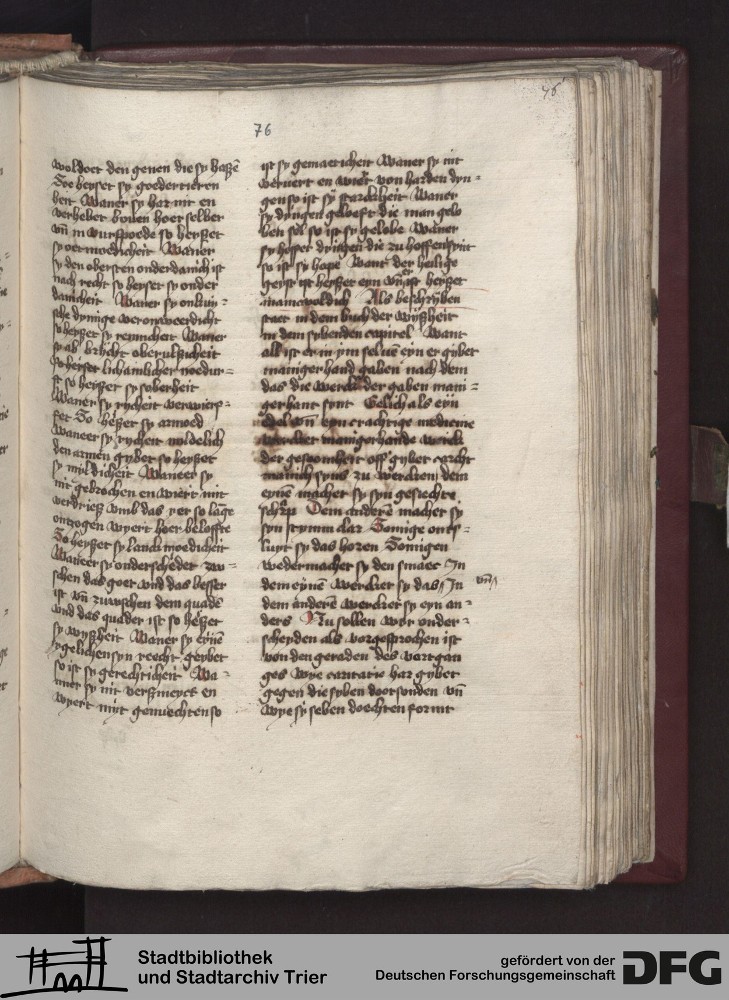 76
woldoet den genen die sy haßẽ
Soe heyset sy goedertieren
heit Waner sy hat nit en
verhebet bouen hoer selber
vñ in wurspoede so heysset
sy oetmoedicheit Waner
sy den obersten onderdanich ist
nach recht so heyset sy onder
danicheit Waner sy onkui⸗
sche dynnge veronweerdicht
so heysset sy reinicheit Waner
sy ab bricht oberulßicheit
So heisset lichamlicher noedur⸗
ft so heysset sy soberheit
Waner sy rycheit verwierf⸗
fet So heßet sy armoed
Waneer sy rycheit myldelich
den armen gybet so heysset
sy myldicheit Waneer sy
nit gebrochen en wiert mit
verdrieß vmb das yer so lãge
ontzogen wyert hoer beloffte
So heysset sy lanckmoedicheit
Waneer sy onderscheydet zw⸗
schen das goet vnd das besser
ist vñ zuwyschen dem quadẽ
vnd das quader ist so heßet
sy wyßheit Waner sy eynẽ
ygelichen syn reecht geybet
so ist sy gerechticheit Wa⸗
nner sy nit versmeyet en
wyert myt genuechten so
ist sy gemaeticheit Waner sy nit
veruert en wiert von harden dyn⸗
gen so ist sy starckheit Waner
sy dyngen geloeft die man gelo
ben sol so ist sy gelobe Waner
sy hoffet dyngen die zu hoffen synt
so ist sy hope Want der heilige
geyst ist heysset eyn vnd er heysset
manichuoldich Als beschryben
staet in dem buch der wyßheit
in dem sybenden capitel Want
all ist er in ym seluẽ eyn er gybet
maniger hand gaben nach dem
das die wercke der gaben mani⸗
gerhant synt Gelich als eyn
edel vñ eyn crachtige medicine
wercket manigerhande werck
der gesontheit off gybet nacht
manich syns zu wercken dem
eynẽ machet sy syn gesichte
scharp Dem anderẽ machet sy
syn stymm clar Somige ont⸗
luyt sy das horen Somigen
wedermachet sy den smaec In
dem eynẽ wercket sy das In vñ
dem anderẽ wercket sy eyn an⸗
ders Nu sollen wyr onder⸗
scheyden als vorgesprochen ist
von den geraden des vortgan
ges wye caritatis hat gybet
gegen die syben doetsonden vñ
wye sy seben doechten formt
Stadtbibliothek
und Stadtarchiv Trier
gefördert von der
Deutschen Forschungsgemeinschaft
DFG